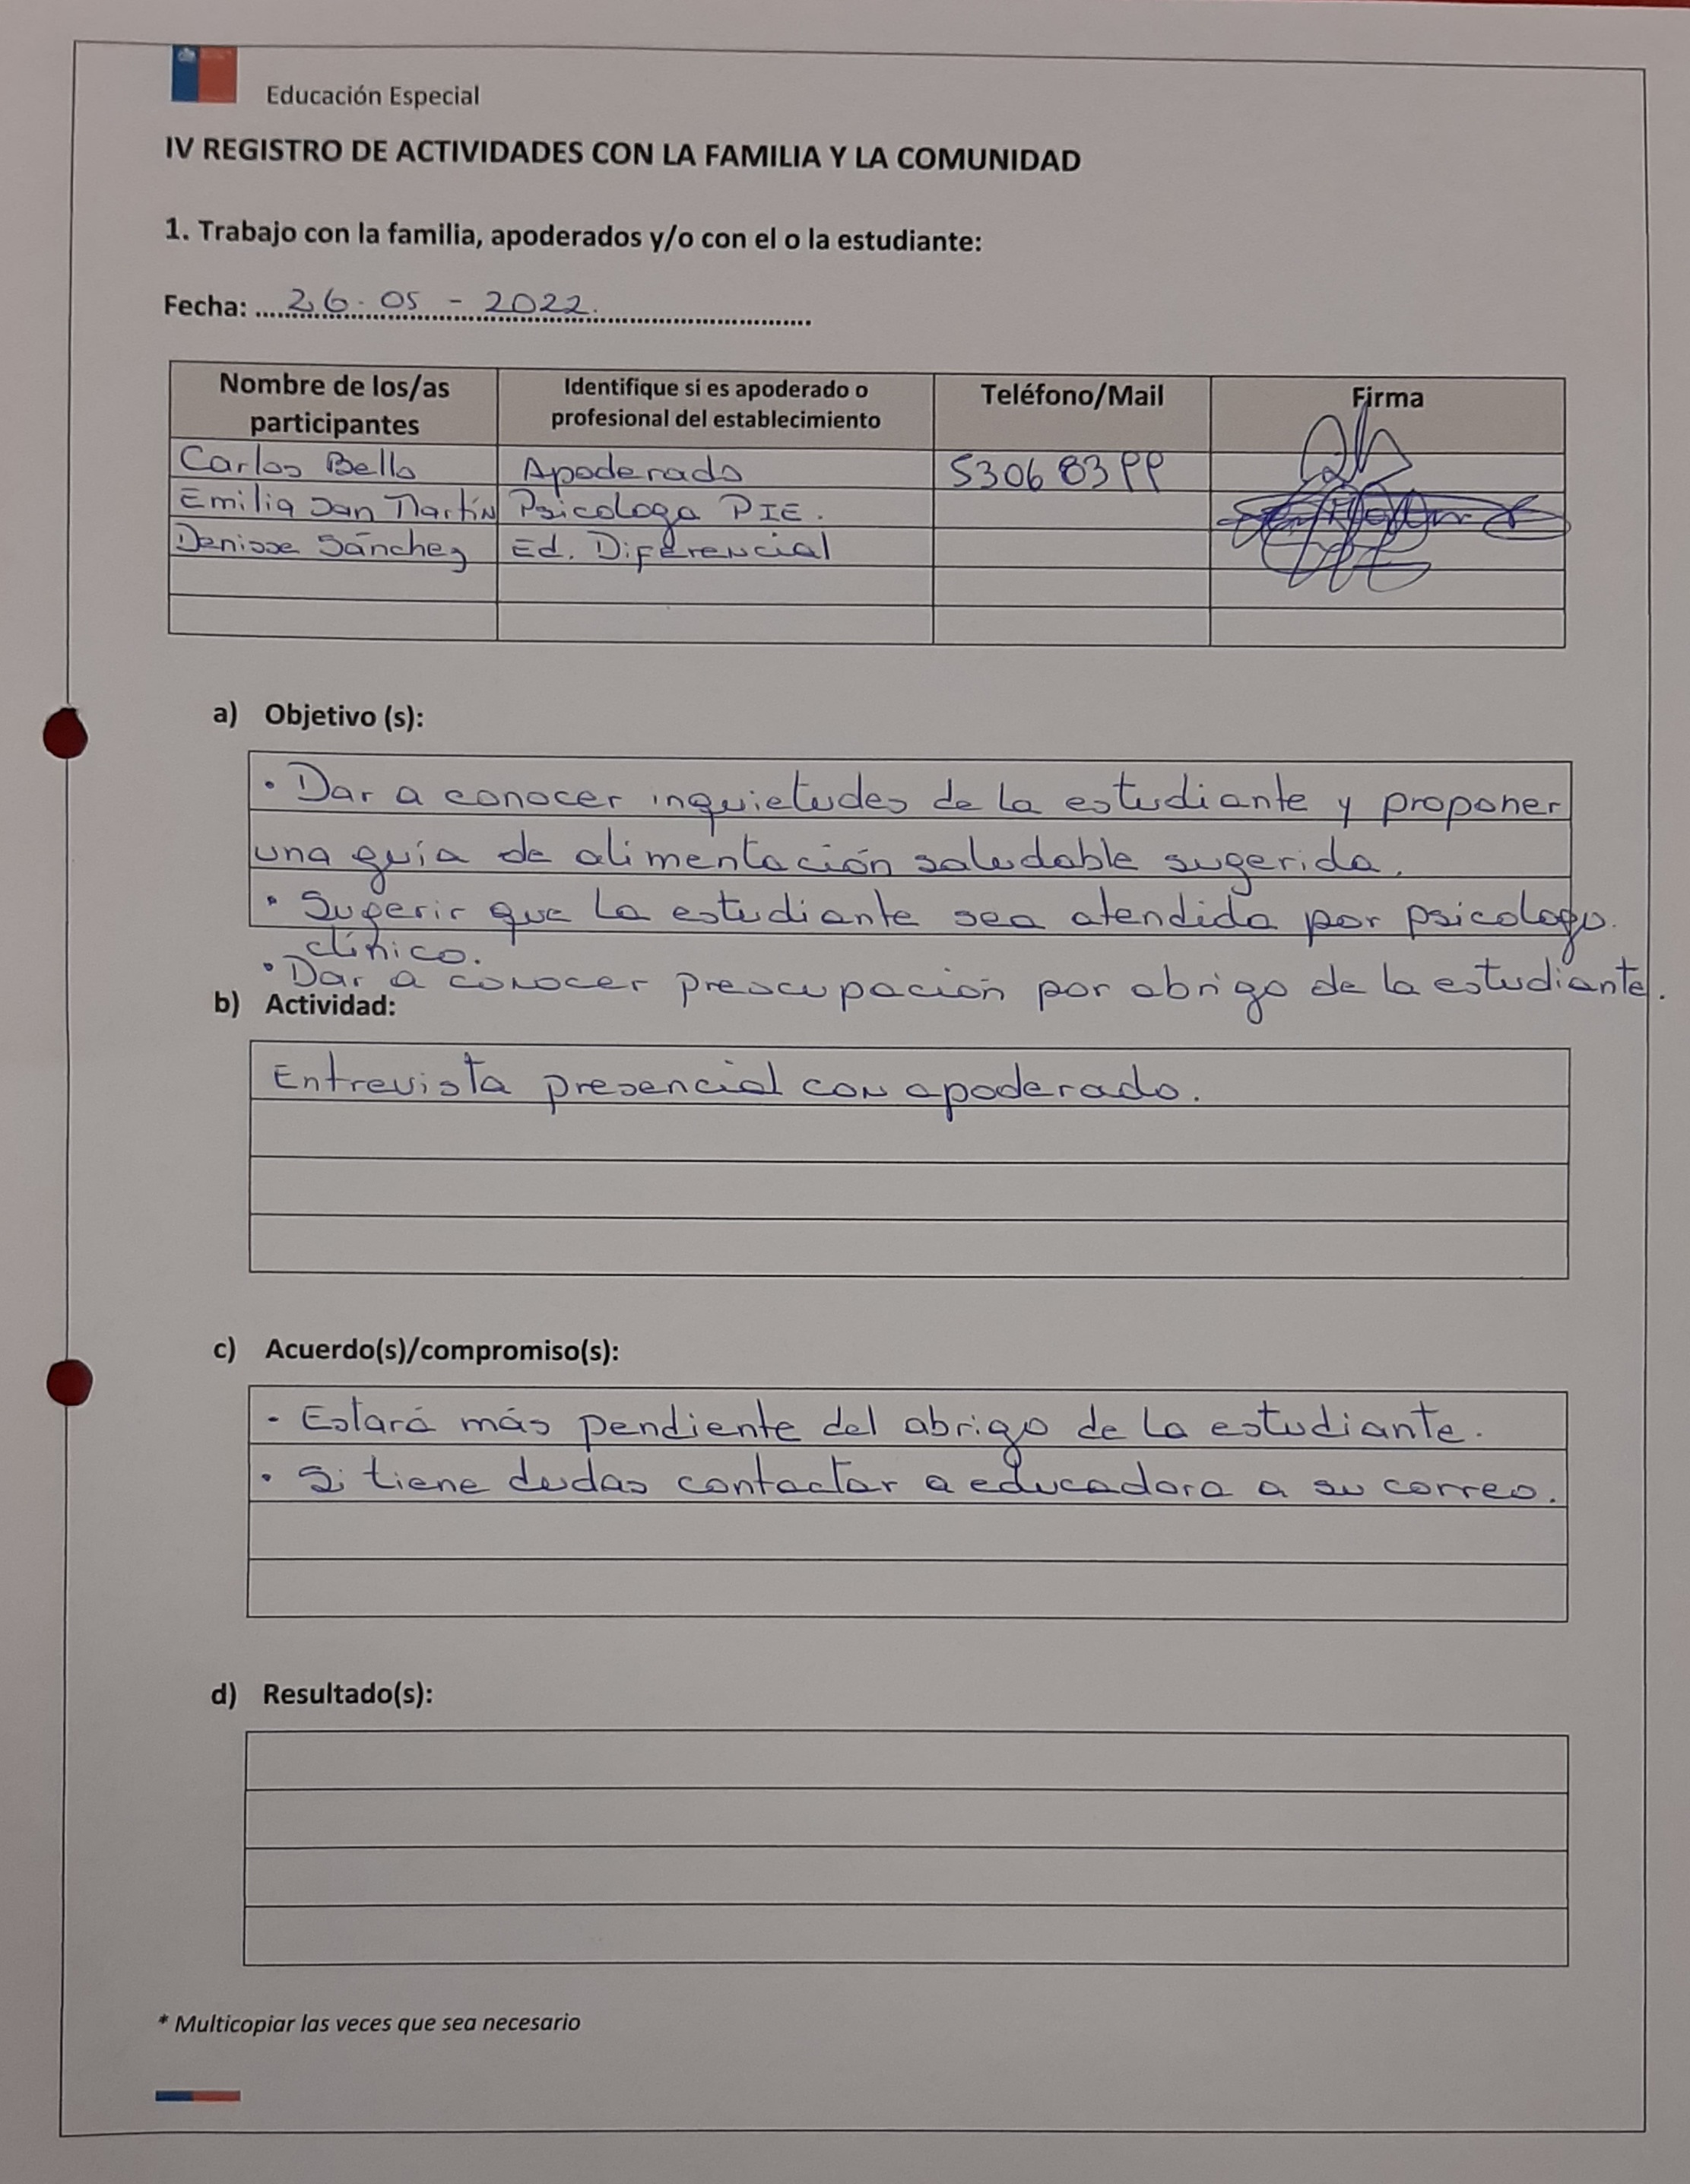 Educación Especial
IV REGISTRO DE ACTIVIDADES CON LA FAMILIA Y LA COMUNIDAD
1. Trabajo con la familia, apoderados y/o con el o la estudiante:
Fecha: 26-05-2022.
Nombre de los/as participantes Identifique si es apoderado o profesional del establecimiento Teléfono/Mail Firma
Carlos Bello Apoderado 53068399
Emilia San Martín Psicologa PIE.
Denisse Sánchez Ed. Diferencial
a) Objetivo (s):
• Dar a conocer inquietudes de la estudiante y proponer
una guía de alimentación saludable sugerida.
• Sugerir que la estudiante sea atendida por psicologo.
clínico.
• Dar a conocer preocupación por abrigo de la estudiante.
b) Actividad:
Entrevista presencial con apoderado.
c) Acuerdo(s)/compromiso(s):
- Estará más pendiente del abrigo de la estudiante.
• Si tiene dudas contactar a educadora a su correo.
d) Resultado(s):
* Multicopiar las veces que sea necesario